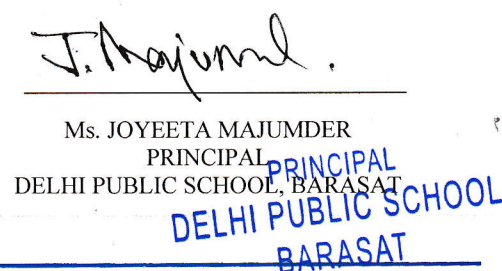 J. Majumd.
Ms. JOYEETA MAJUMDER
PRINCIPAL
DELHI PUBLIC SCHOOL, BARASAT
PRINCIPAL
DELHI PUBLIC SCHOOL
BARASAT